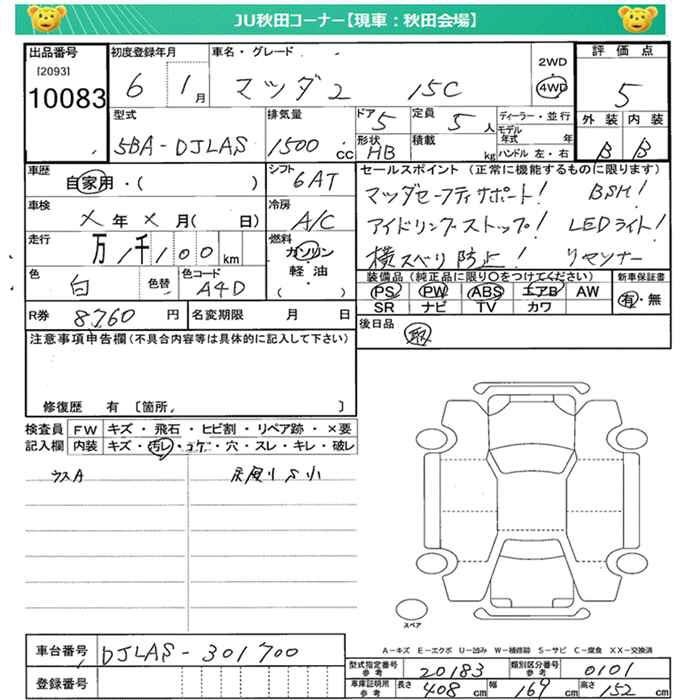 JU秋田コーナー【現車：秋田会場】
出品番号 初度登録年月 車名・グレード 2WD 評価点
[2093] 4WD
10083 6 1月 マツダ2 15C 5
型式 排気量 ドア 5 定員 5人 ディーラー・並行 外装 内装
5BA-DJLAS 1500cc 形状 HB 積載 kg モデル年式 年 B B
ハンドル 左・右
車歴 自家用・( ) シフト 6AT セールスポイント (正常に機能するものに限ります)
マツダセーフティサポート! BSM!
車検 X年X月( 日) 冷房 A/C アイドリングストップ! LEDライト!
走行 万 1千100km 燃料 ガソリン 横スベリ防止! リヤソナー
軽油
( )
色 白 色替 色コード A4D 装備品 (純正品に限り○をつけてください) 新車保証書
PS PW ABS エアB AW 有・無
R券 8,760円 名変期限 月 日 SR ナビ TV カワ
注意事項申告欄(不具合内容等は具体的に記入して下さい) 後日品 取
修復歴 有 [箇所, ]
検査員 FW キズ・飛石・ヒビ割・リペア跡・×要
記入欄 内装 キズ・汚レ・コゲ・穴・スレ・キレ・破レ
ウスA
スペア
A-キズ E-エクボ U-凹み W-補修跡 S-サビ C-腐食 XX-交換済
車台番号 DJLAS-301700 型式指定番号 参考 20183 類別区分番号 参考 0101
登録番号 車庫証明用 参考 長さ 408cm 幅 169cm 高さ 152cm